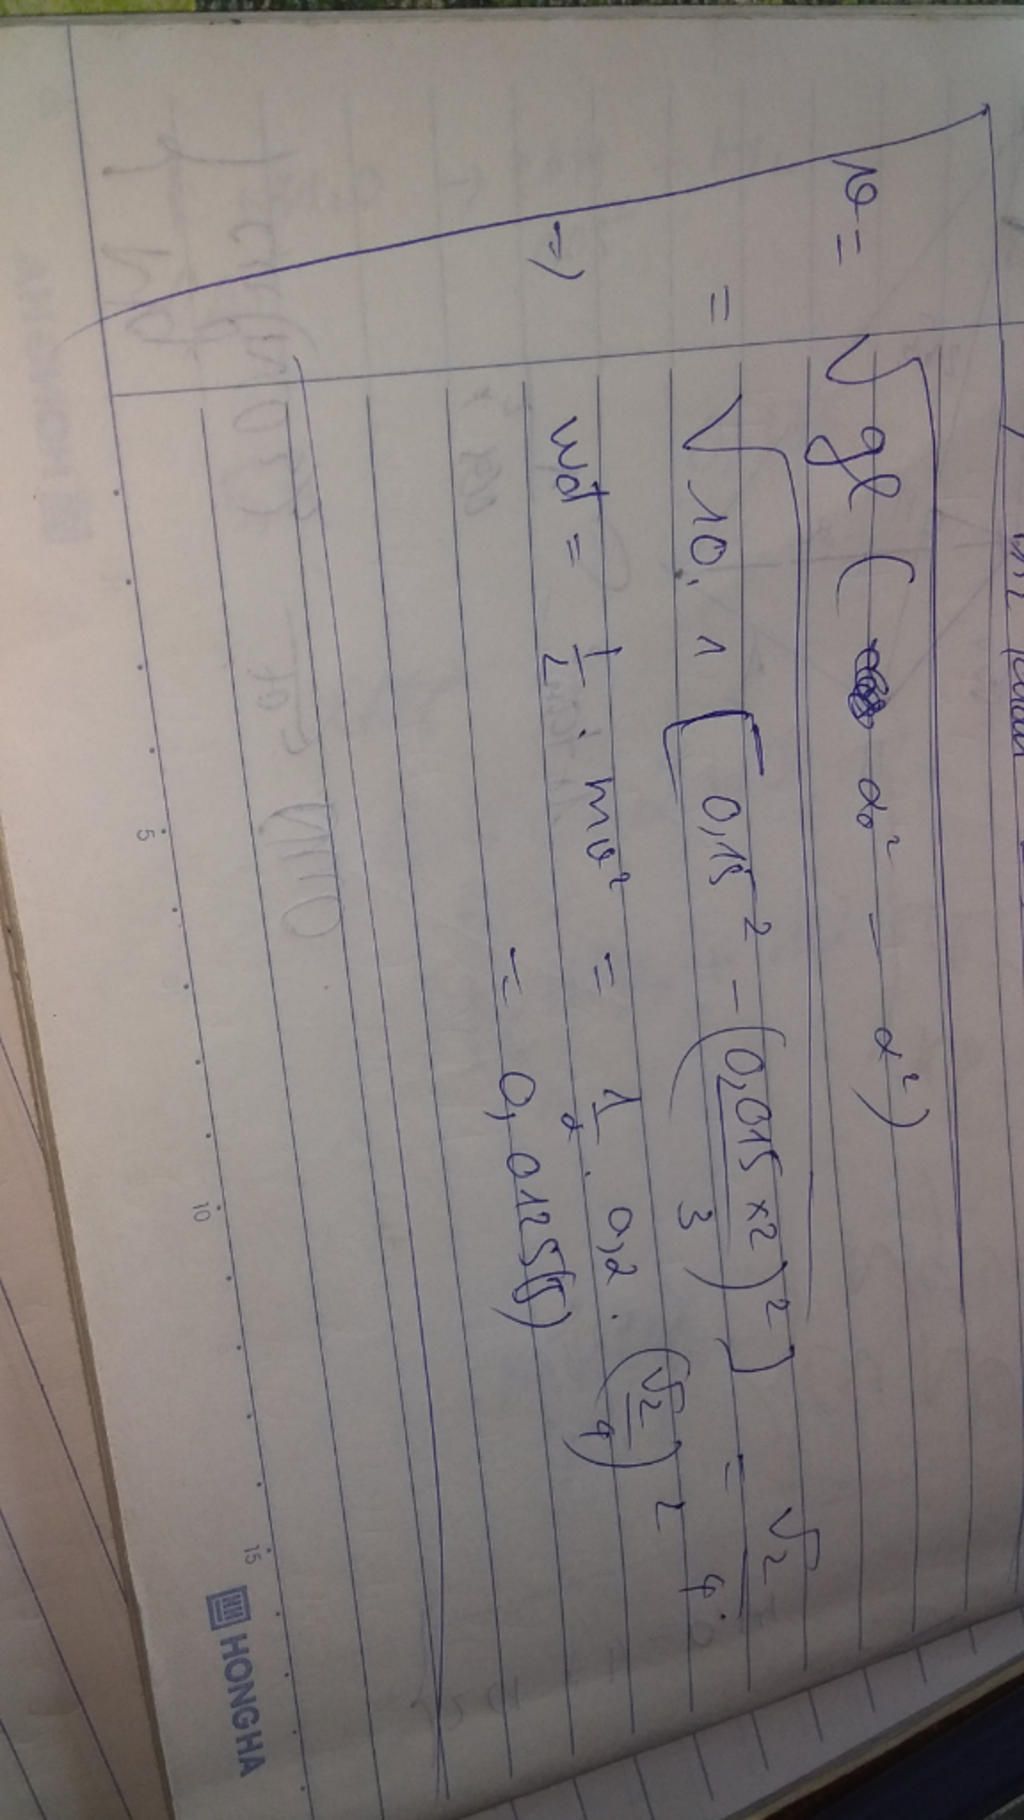 v = √gl ( α₀² - α² )
= √10. 1 [ 0,15² - ( 0,015 x2 / 3 )² ] = √2 / 4
=) Wđ = 1/2 . mv² = 1/2 . 0,2 . ( √2 / 4 )²
= 0,0125(J)
5 10 15
HONGHA